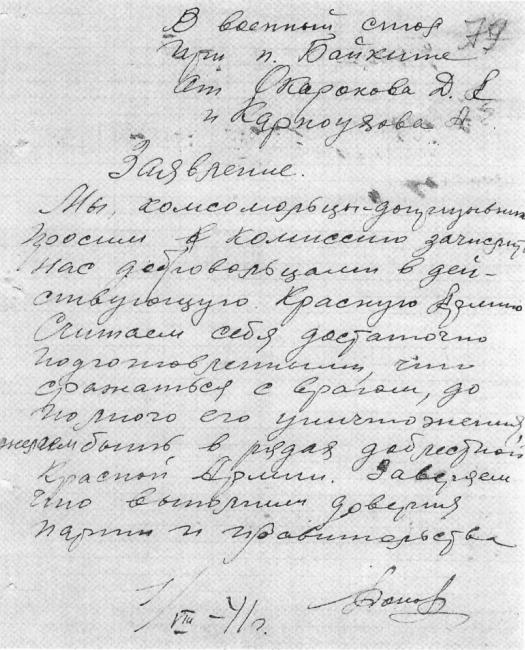 В военный стол 79
при п. Байките
от Скаронова Д. А
и Карпоухова А.
Заявление.
Мы, комсомольцы-допризывники
просим комиссию зачислить
нас добровольцами в дей-
ствующую Красную Армию
Считаем себя достаточно
подготовленными, что
сражаться с врагом, до
полного его уничтожения,
желаем быть в рядах доблестной
Красной Армии. Заверяем
что выполним доверия
партии и правительства
1/VIII-41 г.